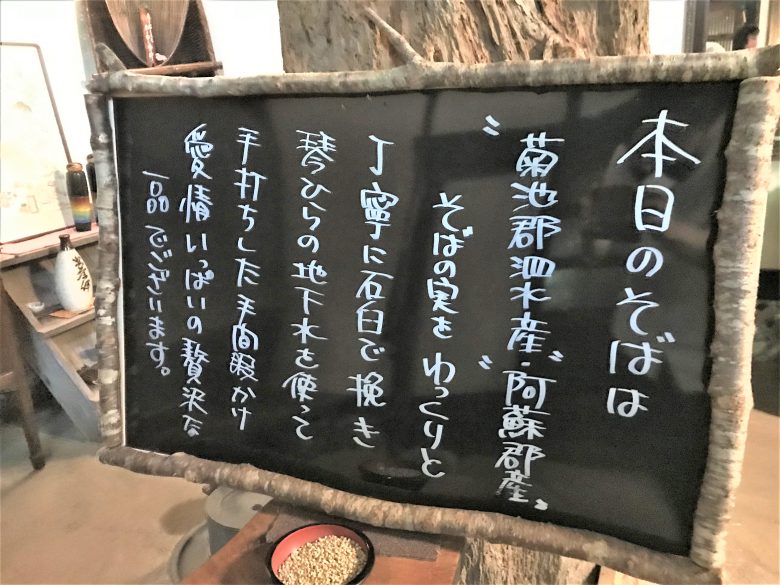 本日のそばは
〝菊池郡泗水産〟・阿蘇郡産〟
そばの実をゆっくりと
丁寧に石臼で挽き
琴ひらの地下水を使って
手打ちした手間暇かけ
愛情いっぱいの贅沢な
一品でございます。